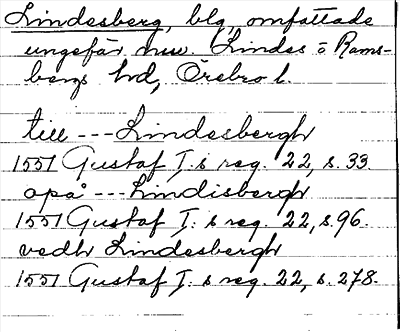 Lindesberg, blg, omfattade
ungefär nuv. Lindes o Rams-
bergs hd, Örebro l.
till --- Lindesbergh
1551 Gustaf I:s reg. 22, s. 33.
opå --- Lindisbergh
1551 Gustaf I:s reg. 22, s. 96.
vedh Lindesbergh
1551 Gustaf I:s reg. 22, s. 278.